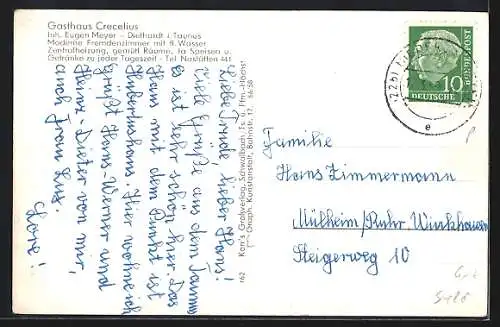 Gasthaus Crecelius
Inh. Eugen Meyer – Diethardt i. Taunus
Moderne Fremdenzimmer mit fl. Wasser
Zentralheizung, gemütl Räume, la Speisen u.
Getränke zu jeder Tageszeit - Tel. Nastätten 441
Liebe Trude, lieber Hans!
Viele Grüße aus dem Taunus
Es ist sehr schön hier. Das
Haus mit dem Punkt ist
Hubertushaus. Hier wohne ich
Grüßt Hans-Werner und
Heinz-Dieter von mir,
auch Frau
Lore!
162 Korr's Großverlag, Schwalbach, Ts. u. Ffm.-Höchst
Graph. Kunstanstalt, Bahnstr. 17,
10
DEUTSCHE BUNDESPOST
(22b)
e
Familie
Hans Zimmermann
Mülheim/Ruhr Winkhausen
Steigerweg 10